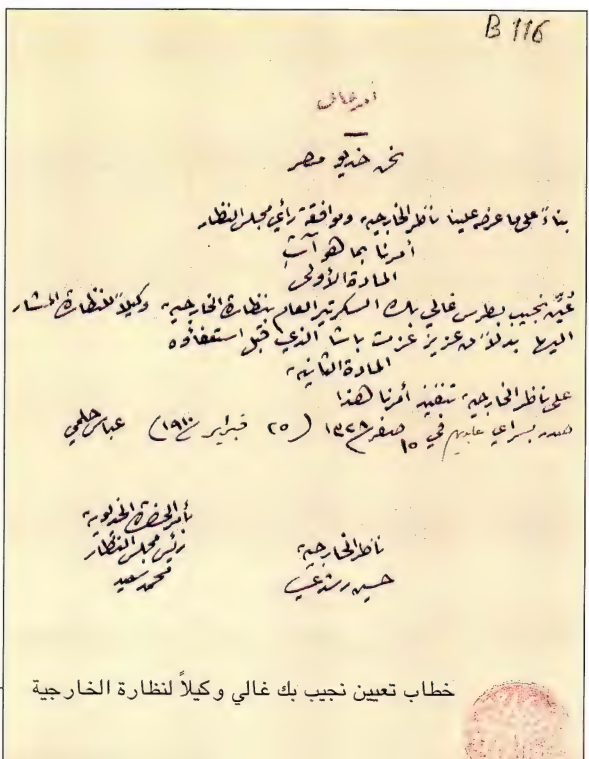 B 116
أمر عالى
نحن خديو مصر
بناءً على ما عرضه علينا ناظر الخارجية وموافقة رأي مجلس النظار
أمرنا بما هو آتٍ
المادة الأولى
عُيّن نجيب بطرس غالي بك السكرتير العام بنظارة الخارجية وكيلاً للنظارة المشار
اليها بدلاً من عزيز عزت باشا الذي قُبل استعفاؤه
المادة الثانية
على ناظر الخارجية تنفيذ أمرنا هذا
صدر بسراي عابدين في ١٥ صفر ١٣٢٨ (٢٥ فبراير ١٩١٠) عباس حلمي
بأمر الحضرة الخديوية
رئيس مجلس النظار
محمد سعيد
ناظر الخارجية
حسين رشدي
خطاب تعيين نجيب بك غالي وكيلاً لنظارة الخارجية